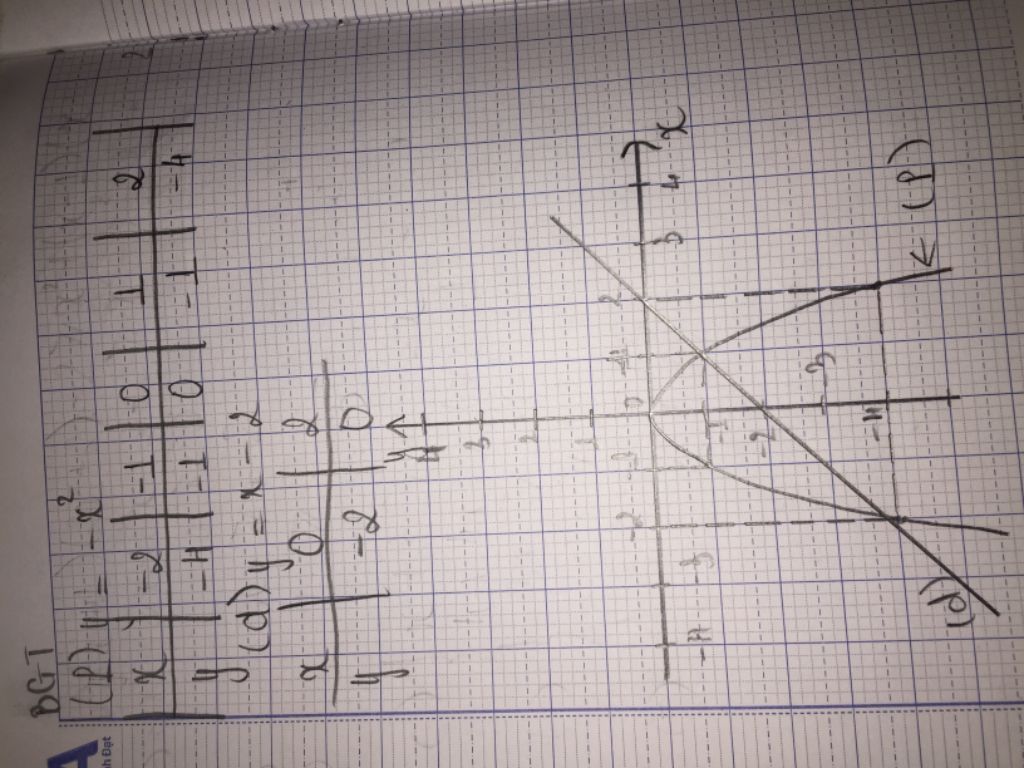 BGT
(P) y = -x²
x -2 -1 0 1 2
y -4 -1 0 -1 -4
(d) y = x - 2
x 0 2
y -2 0
y
4
3
2
1
-4 -3 -2 -1 0 1 2 3 4 x
-1
-2
-3
-4
(d) (P)